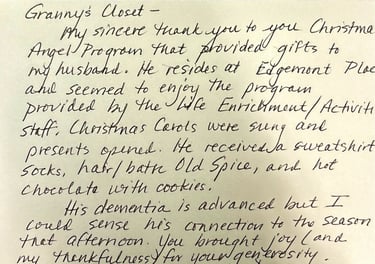 Granny's Closet -
My sincere thank you to you Christmas
Angel Program that provided gifts to
my husband. He resides at Edgemont Plac
and seemed to enjoy the program
provided by the Life Enrichment/Activiti
staff. Christmas Carols were sung and
presents opened. He received a sweatshirt
socks, hair/bath Old Spice, and hot
chocolate with cookies.
His dementia is advanced but I
could sense his connection to the season
that afternoon. You brought joy (and
my thankfulness for your generosity.